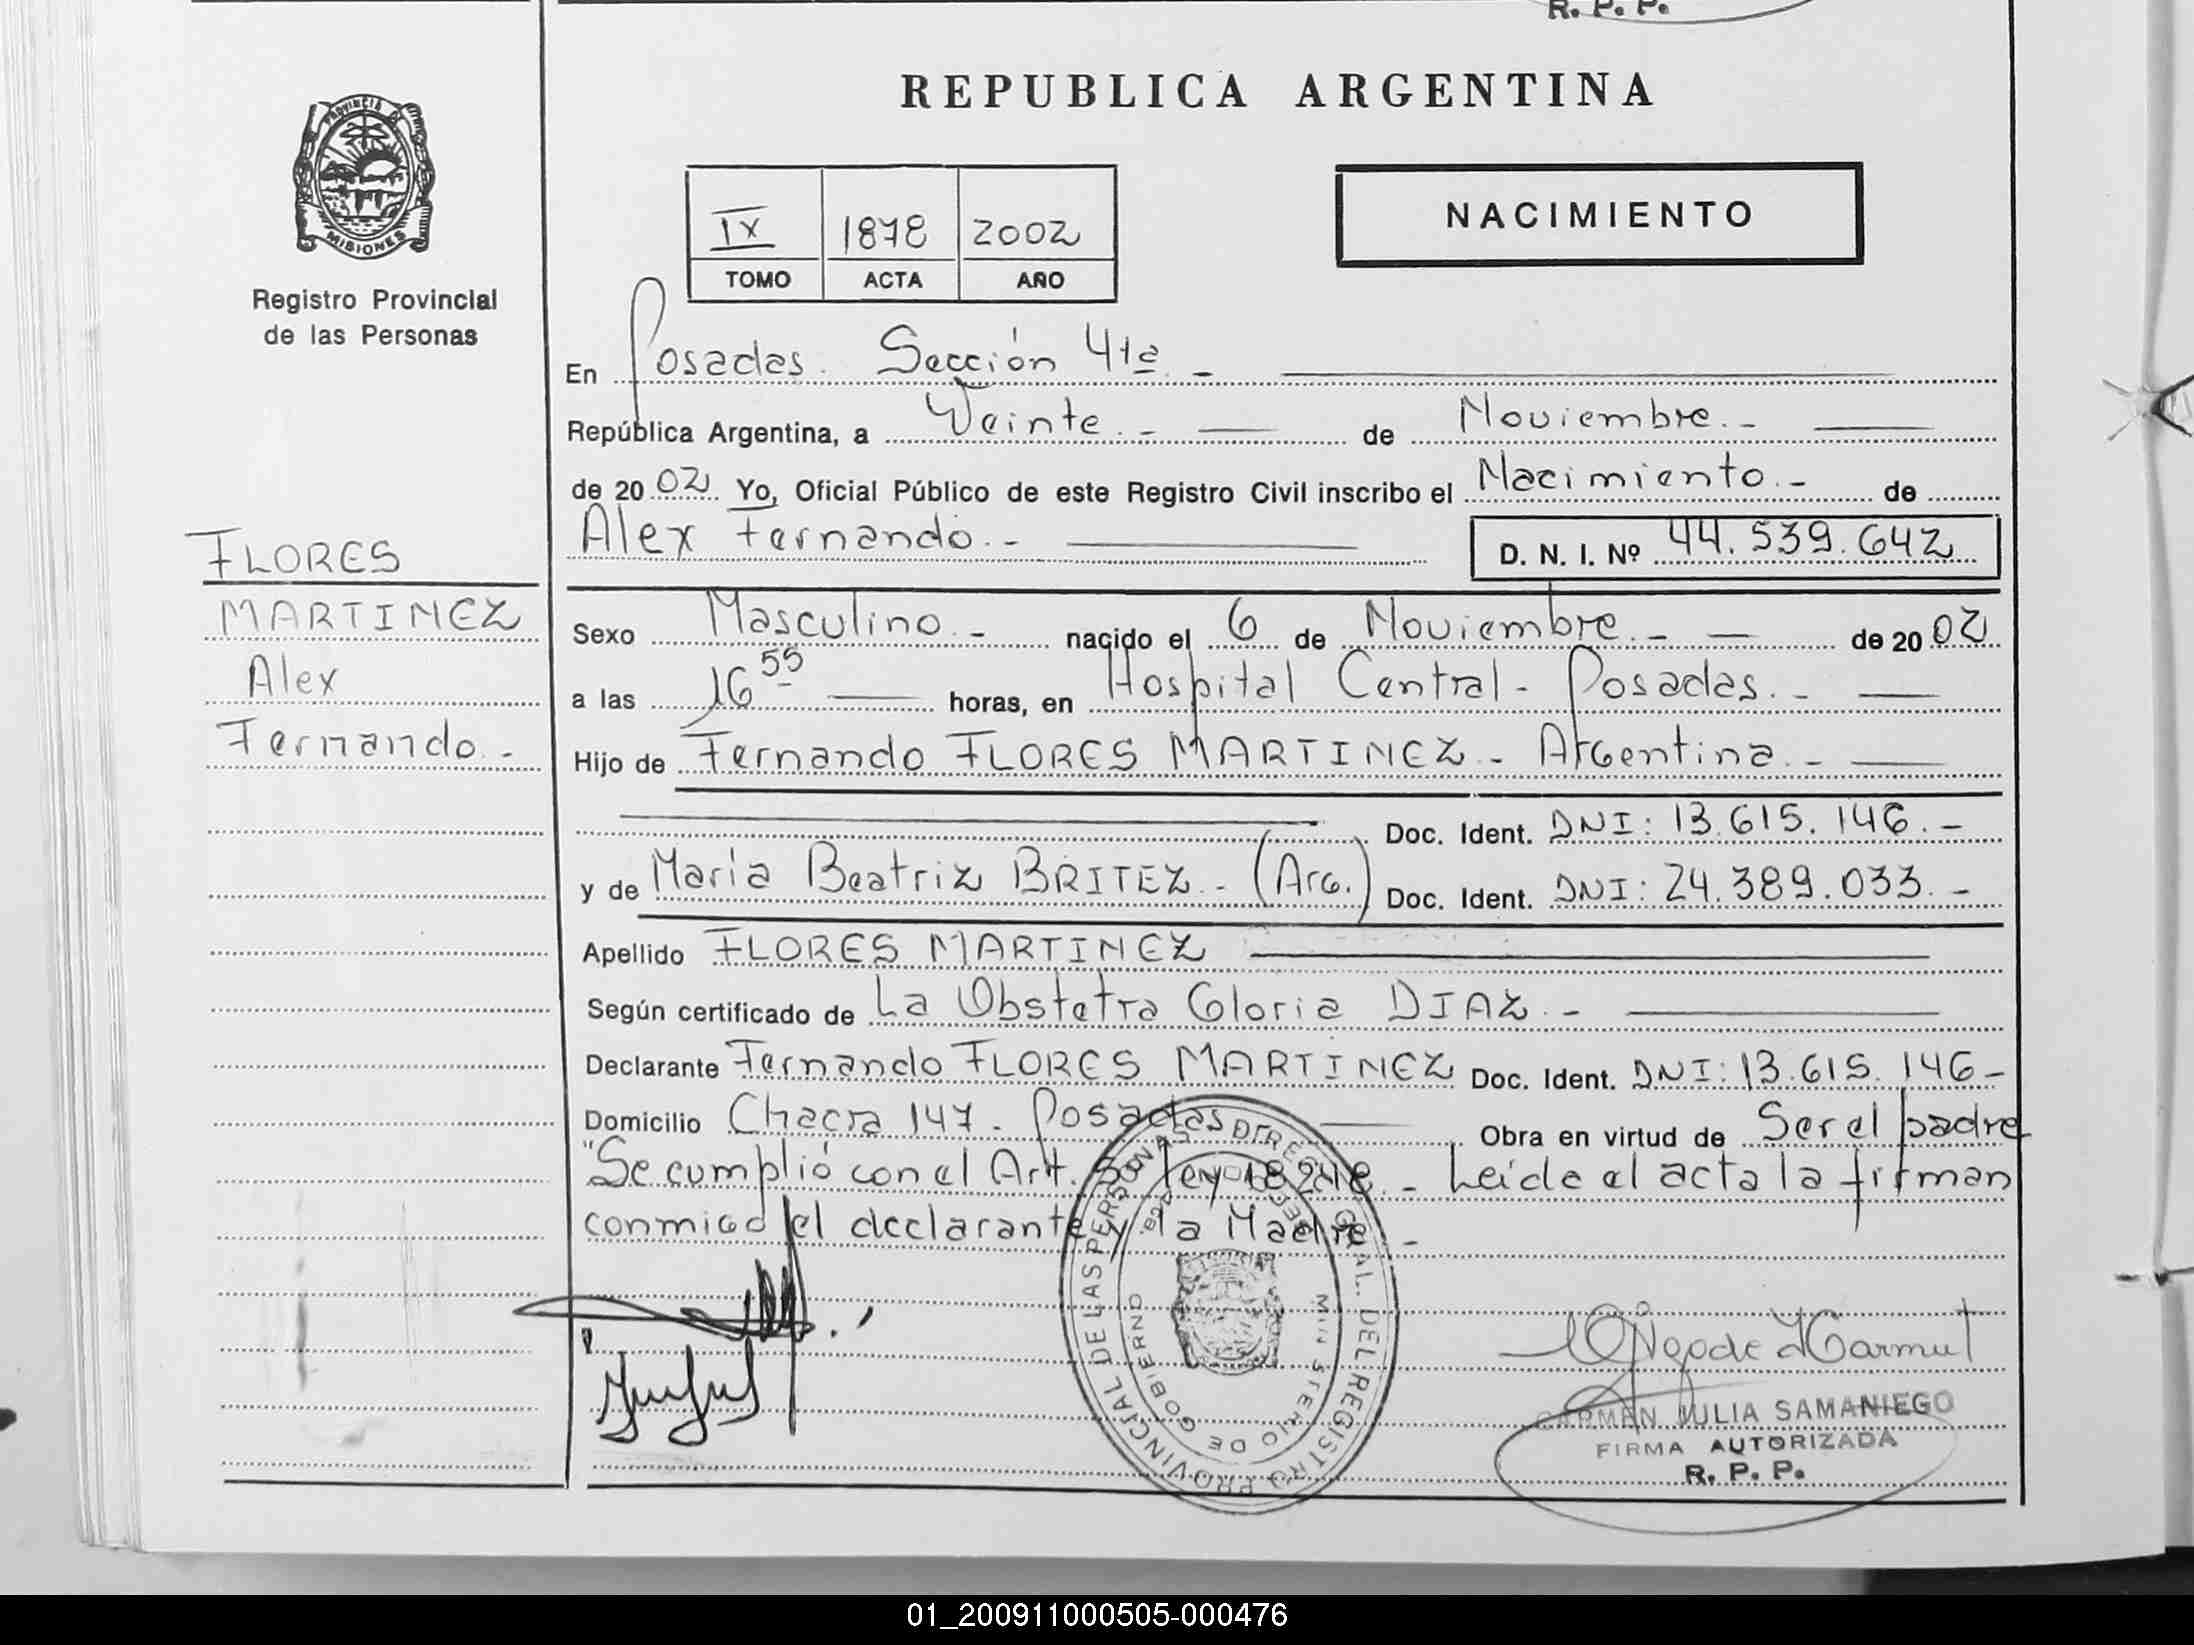 R. P. P.
REPUBLICA ARGENTINA
PROVINCIA DE
MISIONES
Registro Provincial
de las Personas
IX 1878 2002
TOMO ACTA AÑO
NACIMIENTO
En Posadas. Sección 4ta. -
República Argentina, a Veinte. - de Noviembre. -
de 20 02 Yo, Oficial Público de este Registro Civil inscribo el Nacimiento. - de
Alex Fernando. - D. N. I. Nº 44.539.642
FLORES
MARTINEZ
Alex
Fernando. -
Sexo Masculino. - nacido el 6 de Noviembre. - de 20 02
a las 16 55 horas, en Hospital Central - Posadas. -
Hijo de Fernando FLORES MARTINEZ - Argentina. -
Doc. Ident. DNI: 13.615.146. -
y de María Beatriz BRITEZ. - (Arg.) Doc. Ident. DNI: 24.389.033. -
Apellido FLORES MARTINEZ
Según certificado de La Obstetra Gloria DIAZ. -
Declarante Fernando FLORES MARTINEZ Doc. Ident. DNI: 13.615.146 -
Domicilio Chacra 147. Posadas Obra en virtud de Ser el padre
"Se cumplió con el Art. Ley 18248. - Leída el acta la firman
conmigo el declarante y la Madre. -
DIREC. GRAL. DEL REGISTRO PROVINCIAL DE LAS PERSONAS
MINISTERIO DE GOBIERNO
CARMEN JULIA SAMANIEGO
FIRMA AUTORIZADA
R. P. P.
01_200911000505-000476